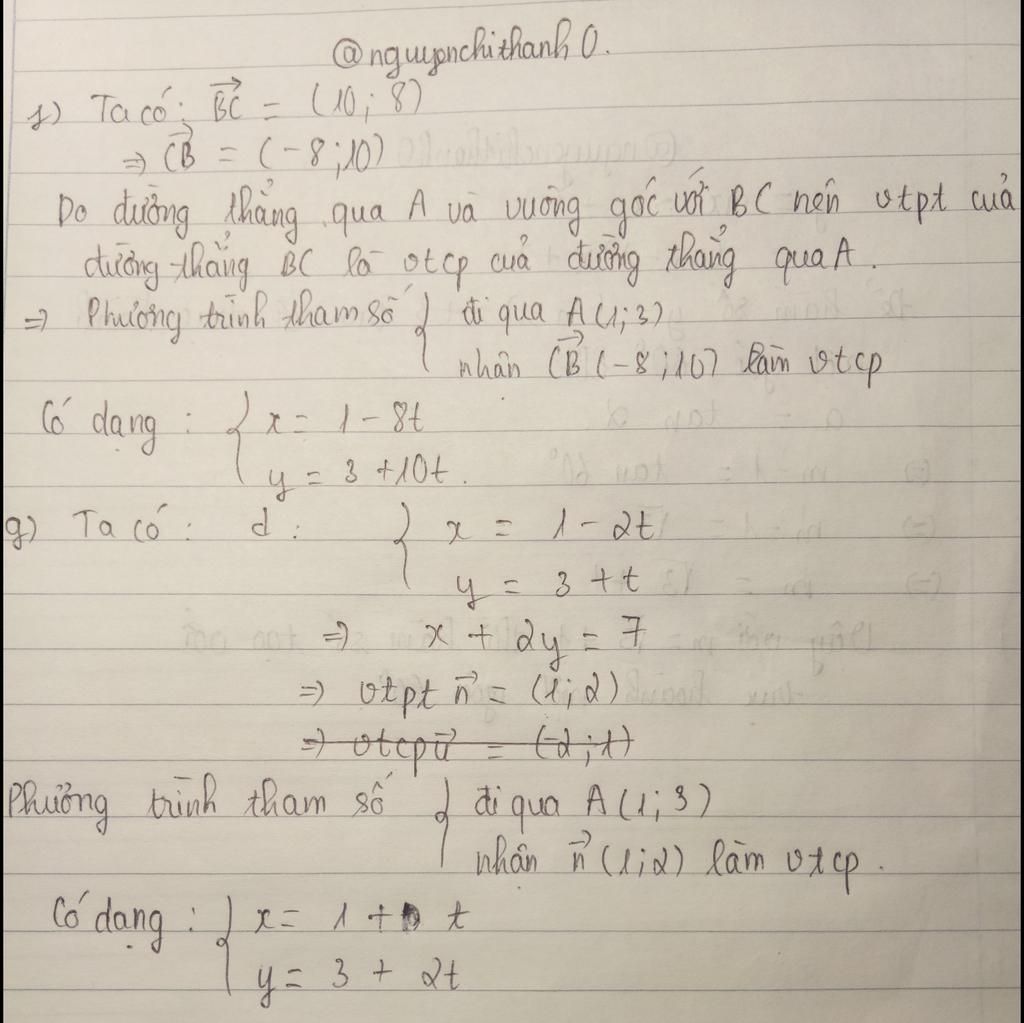 @nguyenchithanh0.
f) Ta có: BC→ = (10; 8)
=> CB→ = (-8; 10)
Do đường thẳng qua A và vuông góc với BC nên vtpt của
đường thẳng BC là vtcp của đường thẳng qua A.
=> Phương trình tham số { đi qua A(1; 3)
nhân CB→ (-8; 10) làm vtcp
Có dạng: { x = 1 - 8t
y = 3 + 10t.
g) Ta có: d: { x = 1 - 2t
y = 3 + t
=> x + 2y = 7
=> vtpt n→ = (1; 2)
=> vtcp u→ = (-2; 1)
Phương trình tham số { đi qua A(1; 3)
nhận n→ (1; 2) làm vtcp.
Có dạng: { x = 1 + t
y = 3 + 2t